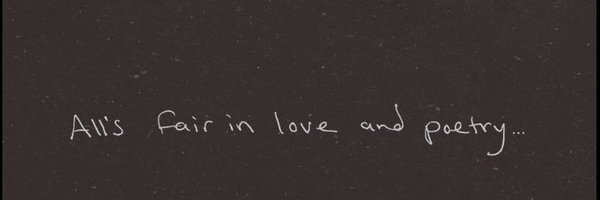 All's fair in love and poetry...